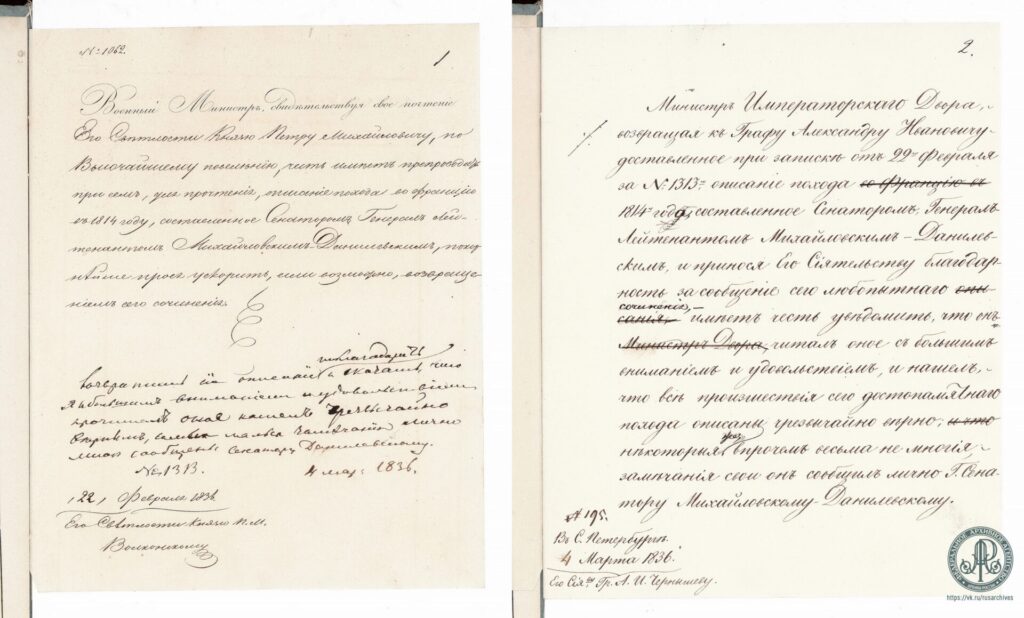 № 1062.
1
Военный Министръ, свидѣтельствуя свое почтеніе
Его Свѣтлости Князю Петру Михайловичу, по
Высочайшему повелѣнію, честь имѣетъ препроводить
при семъ, для прочтенія, описаніе похода во Францію
въ 1814 году, составленное Сенаторомъ Генералъ Лей-
тенантомъ Михайловскимъ-Данилевскимъ, покор-
нѣйше прося ускорить, если возможно, возвраще-
ніемъ сего сочиненія.
и благодарить
возвратить описаніе и сказать, что
я съ большимъ вниманіемъ и удовольствіемъ
оное чрезвычайно
замѣчанія лично
мною сообщены Сенатору Данилевскому.
№ 1313.
4 мар. 1836.
"22" Февраля 1836
Его Свѣтлости Князю П. М.
Волконскому
2.
Министръ Императорскаго Двора,
возвращая къ Графу Александру Ивановичу
доставленное при запискѣ отъ 22го Февраля
за № 1313м описаніе похода во Францію въ
1814 года, составленное Сенаторомъ, Генералъ
Лейтенантомъ Михайловскимъ-Данилев-
скимъ, и принося Его Сіятельству благодар-
ность за сообщеніе сего любопытнаго опи-
сочиненія,
санія, имѣетъ честь увѣдомить, что онъ
Министръ Двора, читалъ оное съ большимъ
вниманіемъ и удовольствіемъ, и нашелъ,
что всѣ происшествія сего достопамятнаго
похода описаны чрезвычайно вѣрно; и что
нѣкоторыя впрочемъ весьма не многія
замѣчанія свои онъ сообщилъ лично Г. Сена-
тору Михайловскому-Данилевскому.
№ 195.
Въ С. Петербургѣ.
4 Марта 1836.
Его Сія. Гр. А. И. Чернышеву.
ФЕДЕРАЛЬНОЕ АРХИВНОЕ АГЕНТСТВО
https://vk.ru/rusarchives